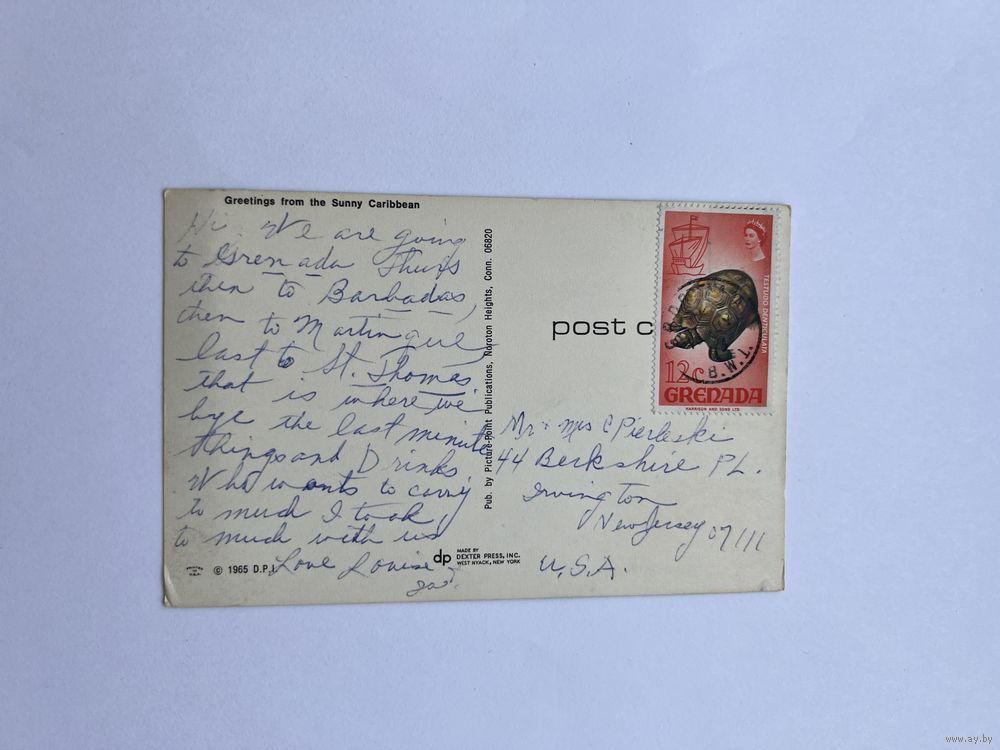 Greetings from the Sunny Caribbean
Hi. We are going
to Grenada Thurs
then to Barbados,
then to Martinque
last to St. Thomas.
that is where we
bye the last minute
things and Drinks
Who wants to carry
to much I took
to much with us
Love Louise
© 1965 D.P.I.
Pub. by Picture-Point Publications, Noroton Heights, Conn. 06820
dp
MADE BY
DEXTER PRESS, INC.
WEST NYACK, NEW YORK
post c
TESTUDO DENTICULATA
B.W.I.
12c
GRENADA
HARRISON AND SONS LTD
Mr + Mrs C Pierleski
44 Berkshire PL.
Irvington
New Jersey 07111
U.S.A.
www.ay.by